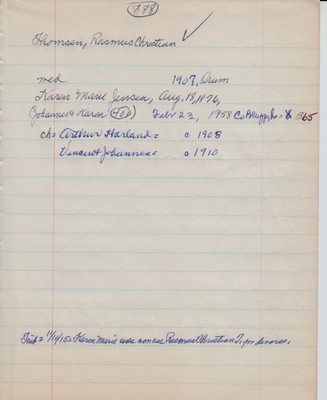 778
Thomsen, Rasmus Christian ✓
med 1907, Drum
Karen Marie Jensen, Aug. 18, 1876,
(Johannes & Karen) Febr 23, 1958 Co. Bluffs, Ia. 65
ch = Arthur Harland = o 1908
Vincent Johannes = o 1910
11/14/52 = Karen Marie was Rasmus Christian T,